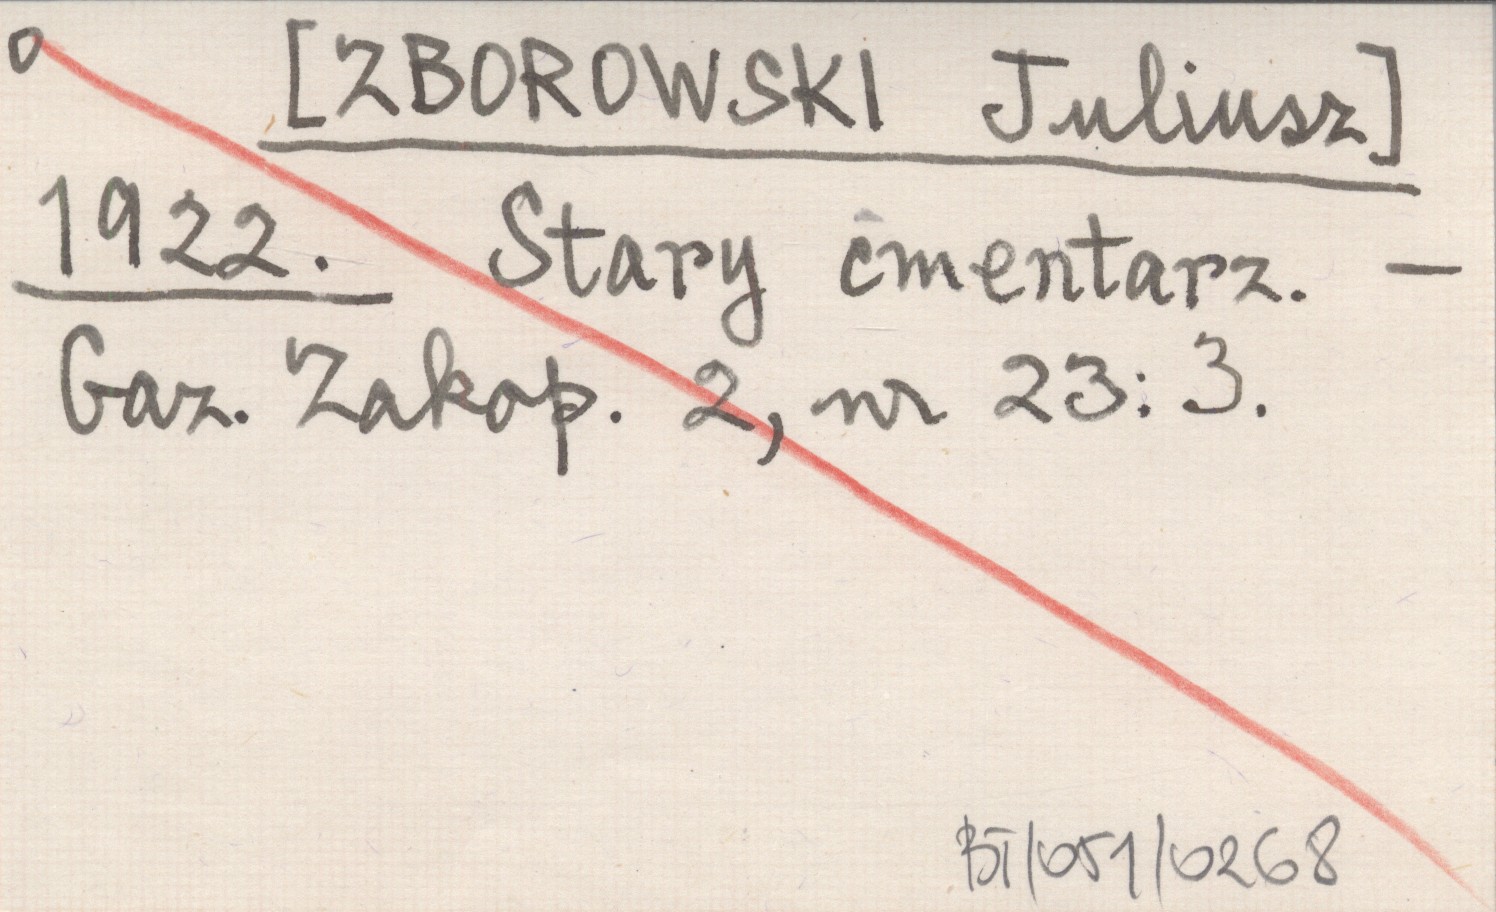 o [ZBOROWSKI Juliusz]
1922. Stary cmentarz. —
Gaz. Zakop. 2, nr 23: 3.
BT/051/0268